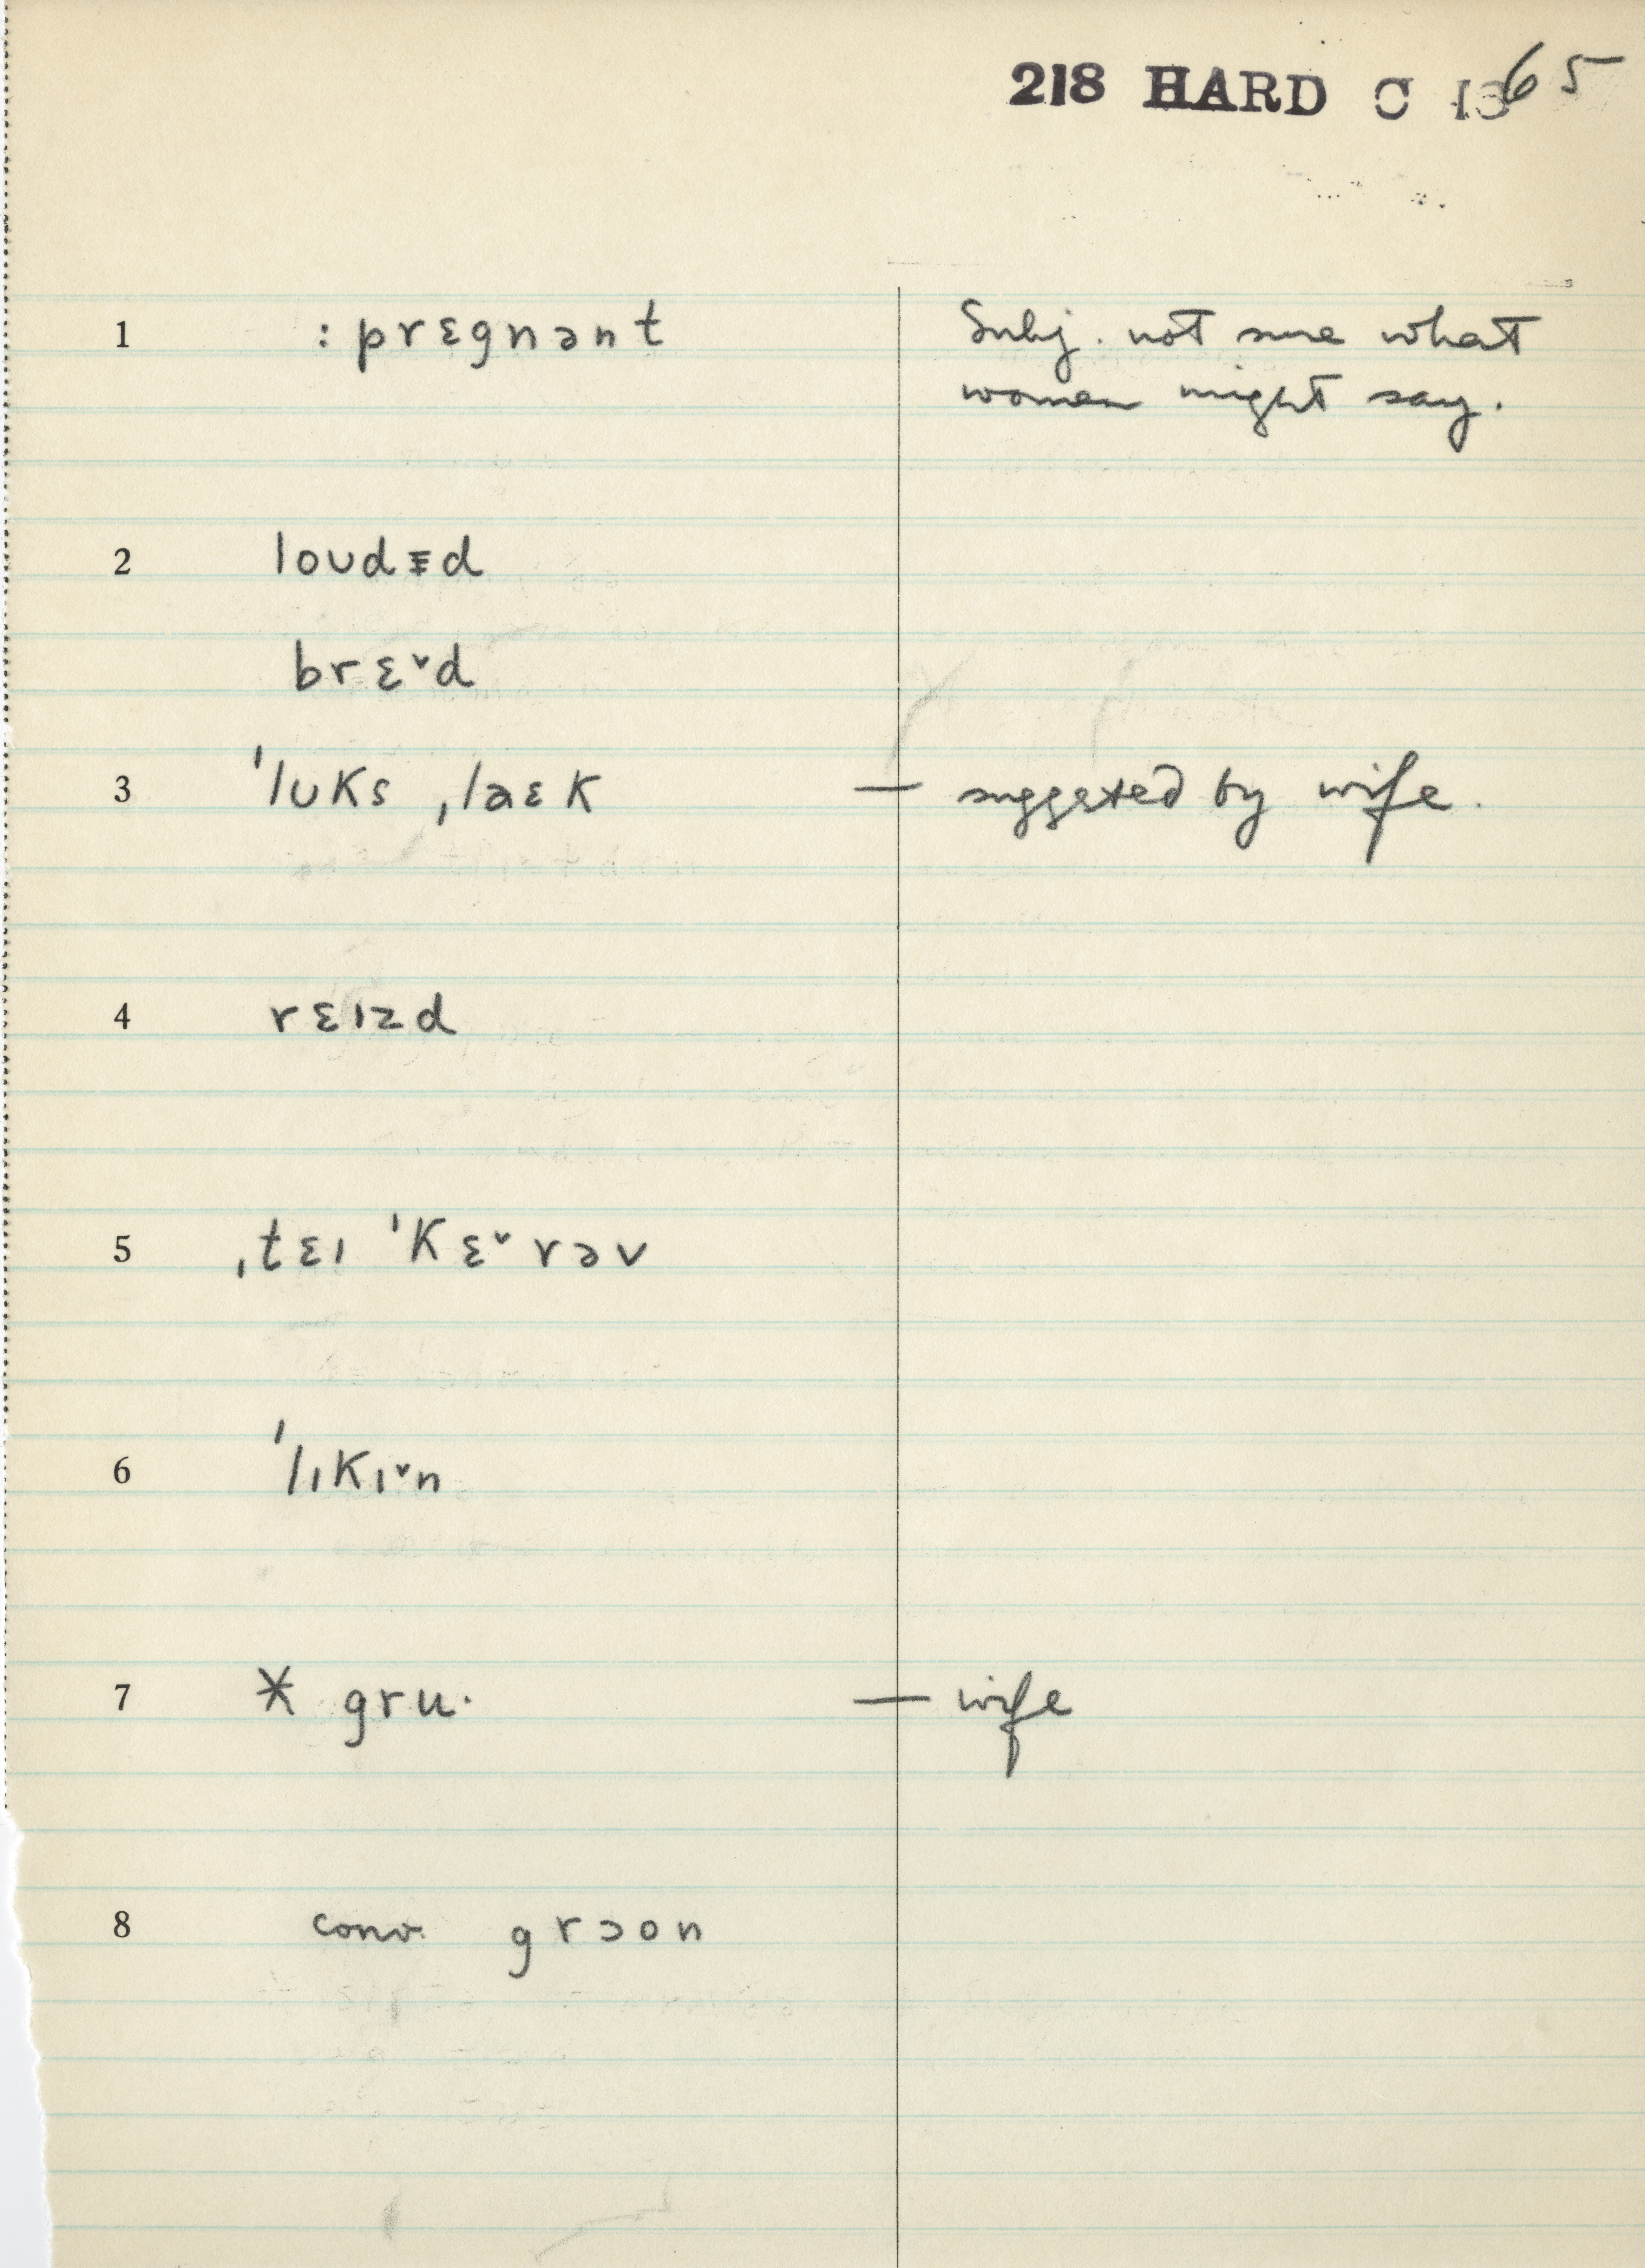 218 HARD C 1365
1 : prɛgnənt Subj. not sure what
women might say.
2 loʊdɨd
brɛ˅d
3 ˈlʊks ˌlaɛk — suggested by wife.
4 rɛɪzd
5 ˌtɛɪ ˈkɛ˅rəv
6 ˈlɪkɪ˅n
7 * gru· — wife
8 conv. grɔon